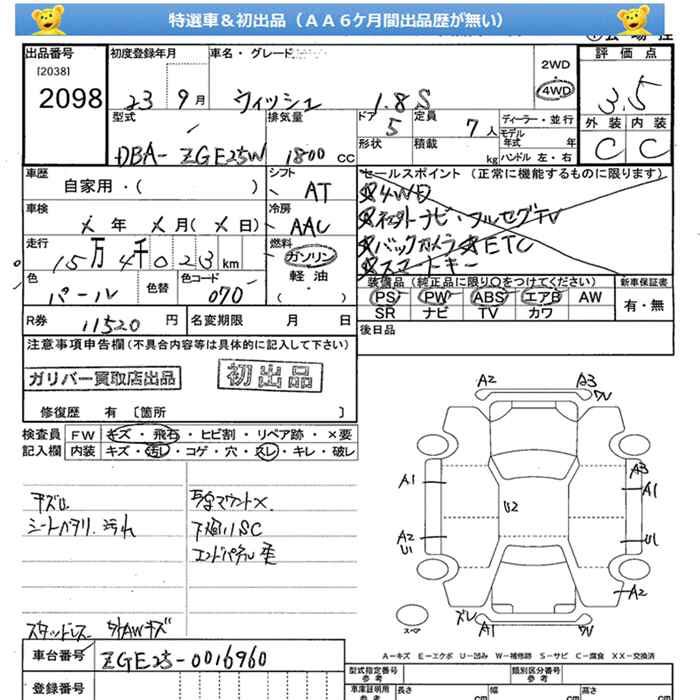 特選車＆初出品（ＡＡ６ケ月間出品歴が無い）
出品番号
[2038]
2098
初度登録年月
23 9月
車名・グレード
ウィッシュ 1.8S
2WD
4WD
評価点
3.5
外装 内装
C C
型式
DBA- ZGE25W
排気量
1800 CC
ドア 5
形状
定員 7人
積載 kg
ディーラー・並行
モデル年式 年式
ハンドル 左・右
車歴
自家用・( )
シフト
AT
車検
メ年 メ月(メ日)
冷房
AAC
走行
15万4千023km
燃料
ガソリン
軽油
( ・ )
色
パール
色替
色コード
070
R券 11520円
名変期限 月 日
セールスポイント（正常に機能するものに限ります）
☆4WD
ナビ・フルセグTV
☆バックカメラ☆ETC
☆スマートキー
装備品（純正品に限り○をつけてください）
PS PW ABS エアB AW
SR ナビ TV カワ
新車保証書
有・無
後日品
注意事項申告欄(不具合内容等は具体的に記入して下さい)
ガリバー買取店出品
初出品
修復歴 有〔箇所 〕
検査員記入欄
FW キズ・飛石・ヒビ割・リペア跡・×要
内装 キズ・汚レ・コゲ・穴・スレ・キレ・破レ
シートヘタリ.汚れ
下廻りSC
エンドパネル歪
スタッドレス
AWキズ
A2 A3
ワレ
A1
U2
A3
A1
A2
U1
U1
A2
ズレ
A1
ワレ
スペア
A-キズ E-エクボ U-凹み W-補修跡 S-サビ C-腐食 XX-交換済
車台番号 ZGE25-0016960
登録番号
型式指定番号
参考
類別区分番号
参考
車庫証明用
参考
長さ cm
幅 cm
高さ cm